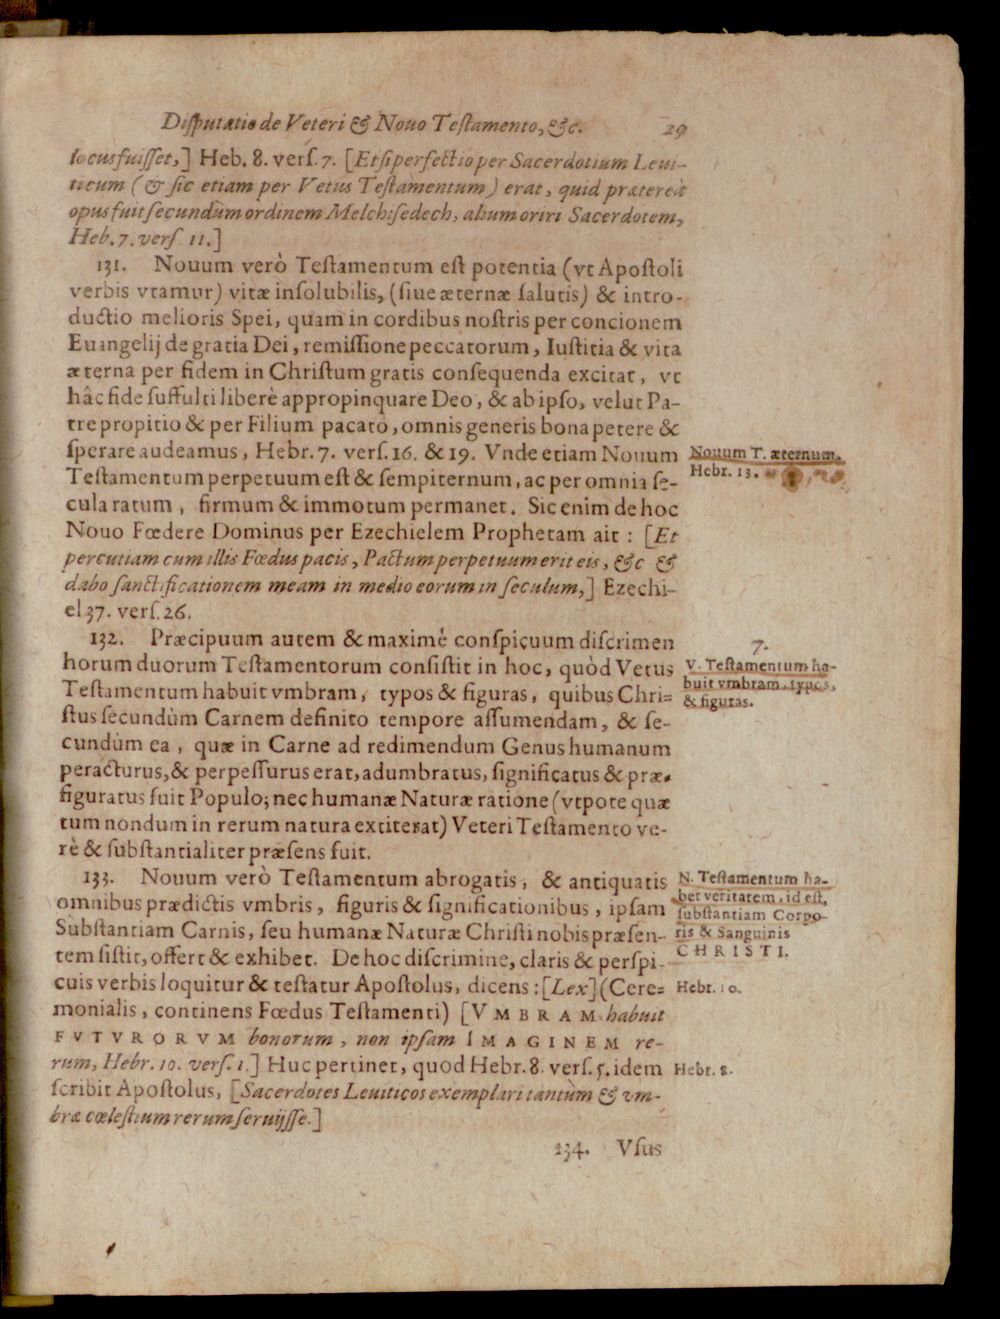 Disputatio de Veteri & Nouo Testamento, &c. 29
locus fuisset,] Heb. 8. vers. 7. [Et si perfectio per Sacerdotium Leui-
ticum (& sic etiam per Vetus Testamentum) erat, quid prætereà
opus fuit secundùm ordinem Melchisedech, alium oriri Sacerdotem,
Heb. 7. vers 11.]
131. Nouum verò Testamentum est potentia (vt Apostoli
verbis vtamur) vitæ insolubilis, (siue æternæ salutis) & intro-
ductio melioris Spei, quam in cordibus nostris per concionem
Euangelij de gratia Dei, remissione peccatorum, Iustitia & vita
æterna per fidem in Christum gratis consequenda excitat, vt
hâc fide suffulti liberè appropinquare Deo, & ab ipso, velut Pa-
tre propitio & per Filium pacato, omnis generis bona petere &
sperare audeamus, Hebr. 7. vers. 16. & 19. Vnde etiam Nouum
Testamentum perpetuum est & sempiternum, ac per omnia se-
cula ratum, firmum & immotum permanet. Sic enim de hoc
Nouo Fœdere Dominus per Ezechielem Prophetam ait: [Et
percutiam cum illis Fœdus pacis, Pactum perpetuum erit eis, &c &
dabo sanctificationem meam in medio eorum in seculum,] Ezechi-
el 37. vers. 26.
Nouum T. æternum.
Hebr. 13.
132. Præcipuum autem & maximè conspicuum discrimen
horum duorum Testamentorum consistit in hoc, quòd Vetus
Testamentum habuit vmbram, typos & figuras, quibus Chri-
stus secundùm Carnem definito tempore assumendam, & se-
cundùm ea, quæ in Carne ad redimendum Genus humanum
peracturus, & perpessurus erat, adumbratus, significatus & præ-
figuratus fuit Populo; nec humanæ Naturæ ratione (vtpote quæ
tum nondum in rerum natura extiterat) Veteri Testamento ve-
rè & substantialiter præsens fuit.
7.
V. Testamentum ha-
buit vmbram, typos,
& figuras.
133. Nouum verò Testamentum abrogatis, & antiquatis
omnibus prædictis vmbris, figuris & significationibus, ipsam
Substantiam Carnis, seu humanæ Naturæ Christi nobis præsen-
tem sistit, offert & exhibet. De hoc discrimine, claris & perspi-
cuis verbis loquitur & testatur Apostolus, dicens: [Lex] (Cere-
monialis, continens Fœdus Testamenti) [VMBRAM habuit
FVTVRORVM bonorum, non ipsam IMAGINEM re-
rum, Hebr. 10. vers. 1.] Huc pertinet, quod Hebr. 8. vers. 5. idem
scribit Apostolus, [Sacerdotes Leuiticos exemplari tantùm & vm-
bræ cœlestium rerum seruijsse.]
N. Testamentum ha-
bet veritatem, id est,
substantiam Corpo-
ris & Sanguinis
CHRISTI.
Hebr. 10.
Hebr. 8.
134. Vsus